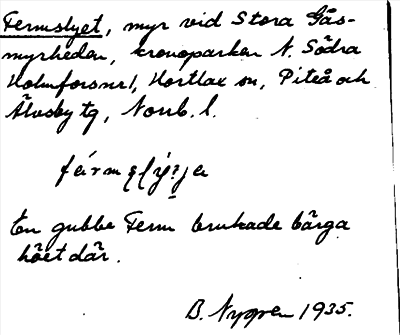 Fermslyet, myr vid Stora Gås-
myrheden, kronoparken N. Södra
Holmforsnr 1, Hortlax sn, Piteå och
Älvsby tg, Norrb. l.
En gubbe Ferm brukade bärga
höet där.
B. Nygren 1935.